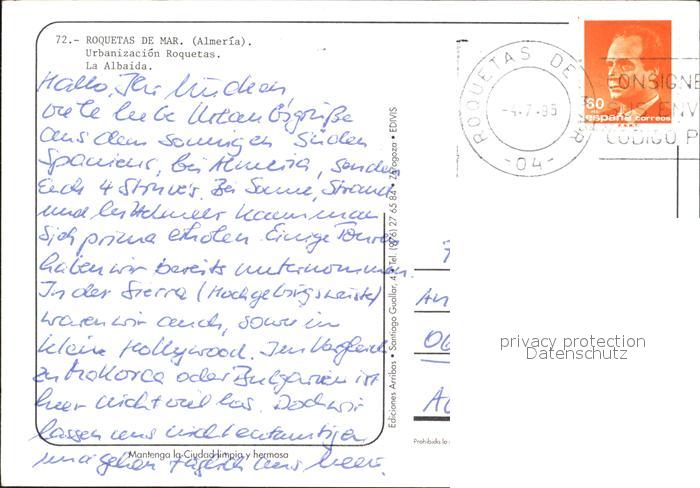 72.- ROQUETAS DE MAR. (Almería).
Urbanización Roquetas.
La Albaida.
Hallo, Ihr
viele liebe Urlaubsgrüße
aus dem sonnigen Süden
Spaniens, bei Almeria, senden
Euch 4 Bei Sonne, Strand
und kann man
sich prima erholen. Einige Touren
haben wir bereits unternommen.
In der Sierra (Hochgebirgswüste)
waren wir auch, sowie in
klein Hollywood. Im Vergleich
zu Mallorca oder Bulgarien ist
hier nicht viel los. Doch wir
lassen uns nicht entmutigen
und gehen täglich ins Meer.
Mantenga la Ciudad limpia y hermosa
Ediciones Arribas • Santiago Guallar, 4 • Tel. (976) 27 65 84 • Zaragoza • EDIVIS
ROQUETAS DE
-4.7.95
-04-
CONSIGNE
ENV
CODIGO P
60
españa correos
An
06
Prohibida la
privacy protection
Datenschutz